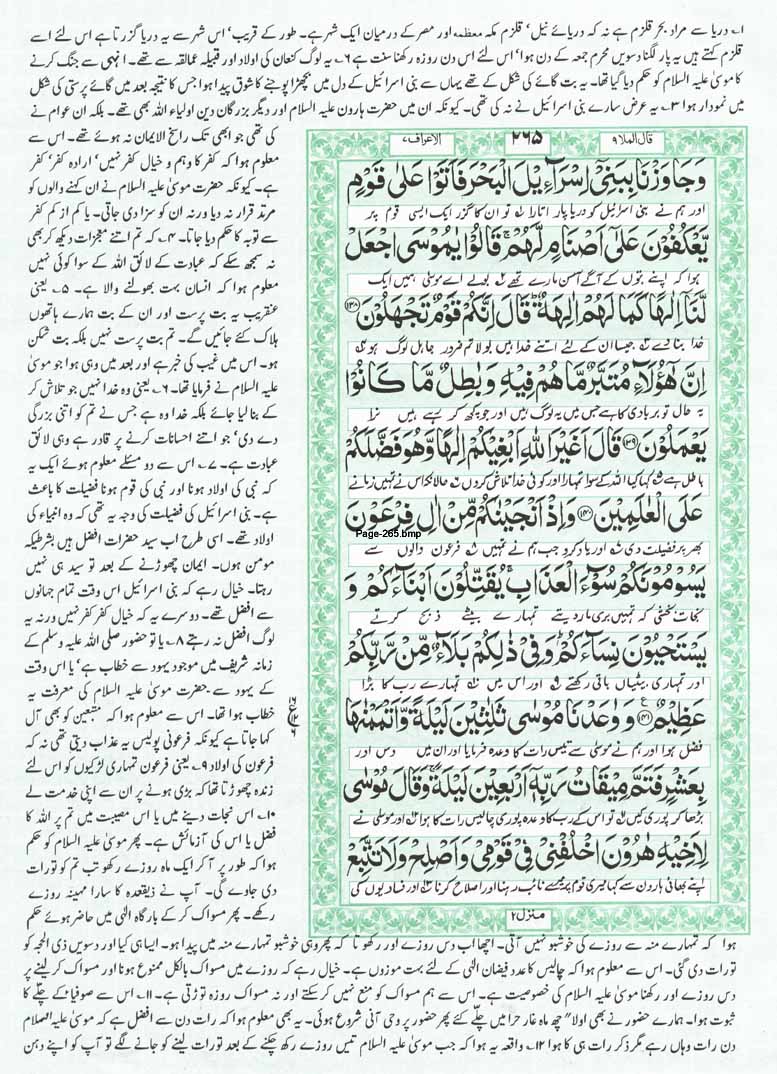 ۱۔ دریا سے مراد بحر قلزم ہے نہ کہ دریائے نیل، قلزم مکہ معظمہ اور مصر کے درمیان ایک شہر ہے۔ طور کے قریب، اس شہر سے یہ دریا گزرتا ہے اس لئے اسے
قلزم کہتے ہیں یہ پار لگنا دسویں محرم جمعہ کے دن ہوا، اس لئے اس دن روزہ رکھنا سنت ہے ۲۔ یہ لوگ کنعان کی اولاد اور قبیلہ عمالقہ سے تھے۔ انہی سے جنگ کرنے
کا موسیٰ علیہ السلام کو حکم دیا گیا تھا۔ یہ بت گائے کی شکل کے تھے یہاں سے بنی اسرائیل کے دل میں بچھڑا پوجنے کا شوق پیدا ہوا جس کا نتیجہ بعد میں گائے پرستی کی شکل
میں نمودار ہوا ۳۔ یہ عرض سارے بنی اسرائیل نے نہ کی تھی۔ کیونکہ ان میں حضرت ہارون علیہ السلام اور دیگر بزرگان دین اولیاء اللہ بھی تھے۔ بلکہ ان عوام نے
قال الملا ۹
۲۶۵
الاعراف ۷
وَجَاوَزْنَا بِبَنِیْۤ اِسْرَآءِیْلَ الْبَحْرَ فَاَتَوْا عَلٰی قَوْمٍ
اور ہم نے بنی اسرائیل کو دریا پار اتارا تو ان کا گزر ایک ایسی قوم پر
یَّعْكُفُوْنَ عَلٰۤی اَصْنَامٍ لَّهُمْ ۚ قَالُوْا یٰمُوْسَی اجْعَلْ
ہوا کہ اپنے بتوں کے آگے آسن مارے تھے بولے اے موسیٰ ہمیں ایک
لَّنَاۤ اِلٰهًا كَمَا لَهُمْ اٰلِهَةٌ ؕ قَالَ اِنَّكُمْ قَوْمٌ تَجْهَلُوْنَ ﴿۱۳۸﴾
خدا بنا دے جیسا ان کے لئے اتنے خدا ہیں بولا تم ضرور جاہل لوگ ہو
اِنَّ هٰۤؤُلَآءِ مُتَبَّرٌ مَّا هُمْ فِیْهِ وَبٰطِلٌ مَّا كَانُوْا
یہ حال تو بربادی کا ہے جس میں یہ لوگ ہیں اور جو کچھ کر رہے ہیں نرا
یَعْمَلُوْنَ ﴿۱۳۹﴾ قَالَ اَغَیْرَ اللّٰهِ اَبْغِیْكُمْ اِلٰهًا وَّهُوَ فَضَّلَكُمْ
باطل ہے کہا کیا اللہ کے سوا تمہارا اور کوئی خدا تلاش کروں حالانکہ اس نے تمہیں زمانے
عَلَی الْعٰلَمِیْنَ ﴿۱۴۰﴾ وَاِذْ اَنْجَیْنٰكُمْ مِّنْ اٰلِ فِرْعَوْنَ
Page-265.bmp
بھر پر فضیلت دی اور یاد کرو جب ہم نے تمہیں فرعون والوں سے
یَسُوْمُوْنَكُمْ سُوْٓءَ الْعَذَابِ ۚ یُقَتِّلُوْنَ اَبْنَآءَكُمْ وَ
نجات بخشی کہ تمہیں بری مار دیتے تمہارے بیٹے ذبح کرتے
یَسْتَحْیُوْنَ نِسَآءَكُمْ ؕ وَفِیْ ذٰلِكُمْ بَلَآءٌ مِّنْ رَّبِّكُمْ
اور تمہاری بیٹیاں باقی رکھتے اور اس میں تمہارے رب کا بڑا
عَظِیْمٌ ﴿۱۴۱﴾ وَوٰعَدْنَا مُوْسٰی ثَلٰثِیْنَ لَیْلَةً وَّاَتْمَمْنٰهَا
فضل ہوا اور ہم نے موسیٰ سے تیس رات کا وعدہ فرمایا اور ان میں دس اور
بِعَشْرٍ فَتَمَّ مِیْقَاتُ رَبِّهٖۤ اَرْبَعِیْنَ لَیْلَةً ۚ وَقَالَ مُوْسٰی
بڑھا کر پوری کیں تو اس کے رب کا وعدہ پوری چالیس رات کا ہوا اور موسیٰ نے
لِاَخِیْهِ هٰرُوْنَ اخْلُفْنِیْ فِیْ قَوْمِیْ وَاَصْلِحْ وَلَا تَتَّبِعْ
اپنے بھائی ہارون سے کہا میری قوم پر میرے نائب رہنا اور اصلاح کرنا اور فسادیوں کی
منزل ۲
کی تھی جو ابھی تک راسخ الایمان نہ ہوئے تھے۔ اس سے
معلوم ہوا کہ کفر کا وہم و خیال کفر نہیں، ارادہ کفر، کفر
ہے۔ کیونکہ حضرت موسیٰ علیہ السلام نے ان کہنے والوں کو
مرتد قرار نہ دیا ورنہ ان کو سزا دی جاتی۔ یا کم از کم کفر
سے توبہ کا حکم دیا جاتا۔ ۴۔ کہ تم اتنے معجزات دیکھ کر بھی
نہ سمجھ سکے کہ عبادت کے لائق اللہ کے سوا کوئی نہیں
معلوم ہوا کہ انسان بہت بھولنے والا ہے۔ ۵۔ یعنی
عنقریب یہ بت پرست اور ان کے بت ہمارے ہاتھوں
ہلاک کئے جائیں گے۔ تم بت پرست نہیں بلکہ بت شکن
ہو۔ اس میں غیب کی خبر ہے اور بعد میں وہی ہوا جو موسیٰ
علیہ السلام نے فرمایا تھا۔ ۶۔ یعنی وہ خدا نہیں جو تلاش کر
کے بنا لیا جائے بلکہ خدا وہ ہے جس نے تم کو اتنی بزرگی
دے دی، جو اتنے احسانات کرنے پر قادر ہے وہی لائق
عبادت ہے۔ ۷۔ اس سے دو مسئلے معلوم ہوئے ایک یہ
کہ نبی کی اولاد ہونا اور نبی کی قوم ہونا فضیلت کا باعث
ہے۔ بنی اسرائیل کی فضیلت کی وجہ یہ تھی کہ وہ انبیاء کی
اولاد تھے۔ اسی طرح اب سید حضرات افضل ہیں بشرطیکہ
مومن ہوں۔ ایمان چھوڑنے کے بعد تو سید ہی نہیں
رہتا۔ خیال رہے کہ بنی اسرائیل اس وقت تمام جہانوں
سے افضل تھے۔ دوسرے یہ کہ خیال کفر کفر نہیں ورنہ یہ
لوگ افضل نہ رہتے ۸۔ یا تو حضور صلی اللہ علیہ وسلم کے
زمانہ شریف میں موجود یہود سے خطاب ہے، یا اس وقت
کے یہود سے حضرت موسیٰ علیہ السلام کی معرفت یہ
خطاب ہوا تھا۔ اس سے معلوم ہوا کہ متبعین کو بھی آل
کہا جاتا ہے کیونکہ فرعونی پولیس یہ عذاب دیتی تھی نہ کہ
فرعون کی اولاد ۹۔ یعنی فرعون تمہاری لڑکیوں کو اس لئے
زندہ چھوڑتا تھا کہ بڑی ہونے پر ان سے اپنی خدمت لے
۱۰۔ اس نجات دینے میں یا اس مصیبت میں تم پر اللہ کا
فضل یا اس کی آزمائش ہے۔ پھر موسیٰ علیہ السلام کو حکم
ہوا کہ طور پر آ کر ایک ماہ روزے رکھو تب تم کو تورات
دی جاوے گی۔ آپ نے ذیقعدہ کا سارا مہینہ روزے
رکھے۔ پھر مسواک کر کے بارگاہ الٰہی میں حاضر ہوئے حکم
ہوا کہ تمہارے منہ سے روزے کی خوشبو نہیں آتی۔ اچھا اب دس روزے اور رکھو تا کہ پھر وہی خوشبو تمہارے منہ میں پیدا ہو۔ ایسا ہی کیا اور دسویں ذی الحجہ کو
تورات دی گئی۔ اس سے معلوم ہوا کہ چالیس کا عدد فیضان الٰہی کے لئے بہت موزوں ہے۔ خیال رہے کہ روزے میں مسواک بالکل ممنوع ہونا اور مسواک کر لینے پر
دس روزے اور رکھنا موسیٰ علیہ السلام کی خصوصیت ہے۔ اس سے ہم مسواک کو منع نہیں کر سکتے اور نہ مسواک روزہ توڑتی ہے۔ ۱۱۔ اس سے صوفیا کے چلے کا
ثبوت ہوا۔ ہمارے حضور نے بھی اولاً چھ ماہ غار حرا میں چلے کئے پھر حضور پر وحی آنی شروع ہوئی۔ یہ بھی معلوم ہوا کہ رات دن سے افضل ہے کہ موسیٰ علیہ السلام
دن رات وہاں رہے مگر ذکر رات ہی کا ہوا ۱۲۔ واقعہ یہ ہوا کہ جب موسیٰ علیہ السلام تیس روزے رکھ چکنے کے بعد تورات لینے کو جانے لگے تو آپ کو اپنے دہن